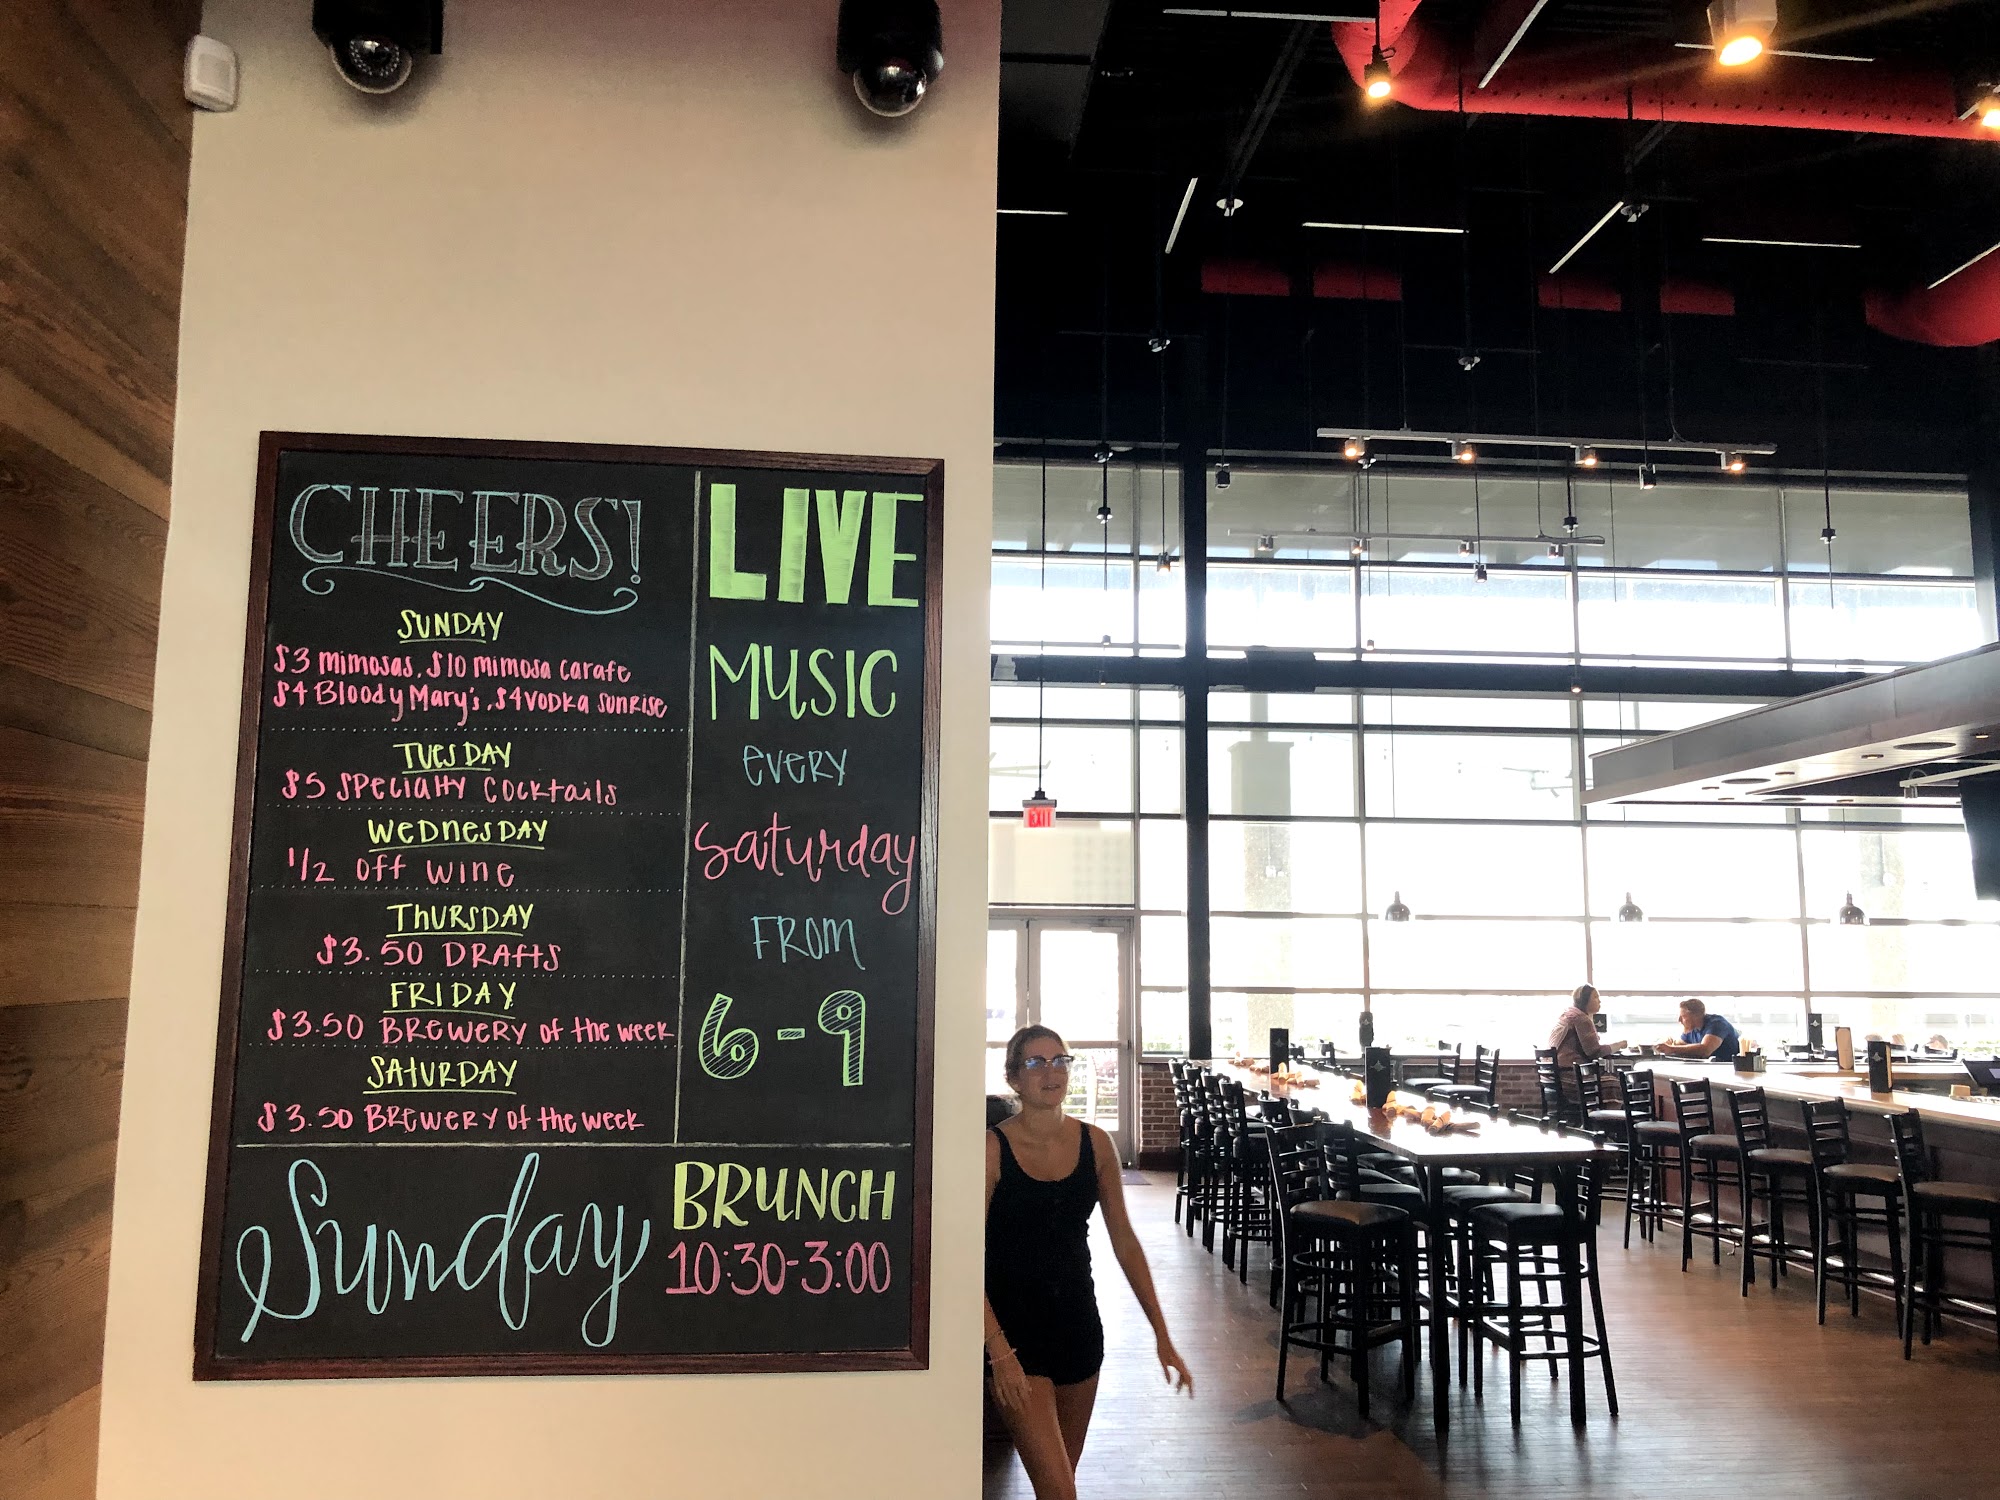 CHEERS!
SUNDAY
$3 mimosas, $10 mimosa carafe
$4 Bloody Mary's, $4 vodka sunrise
TUESDAY
$5 specialty cocktails
WEDNESDAY
1/2 off wine
THURSDAY
$3.50 DRAFTS
FRIDAY
$3.50 BREWERY of the week
SATURDAY
$3.50 BREWERY of the week
LIVE
MUSIC
every
Saturday
FROM
6-9
Sunday
BRUNCH
10:30-3:00
EXIT